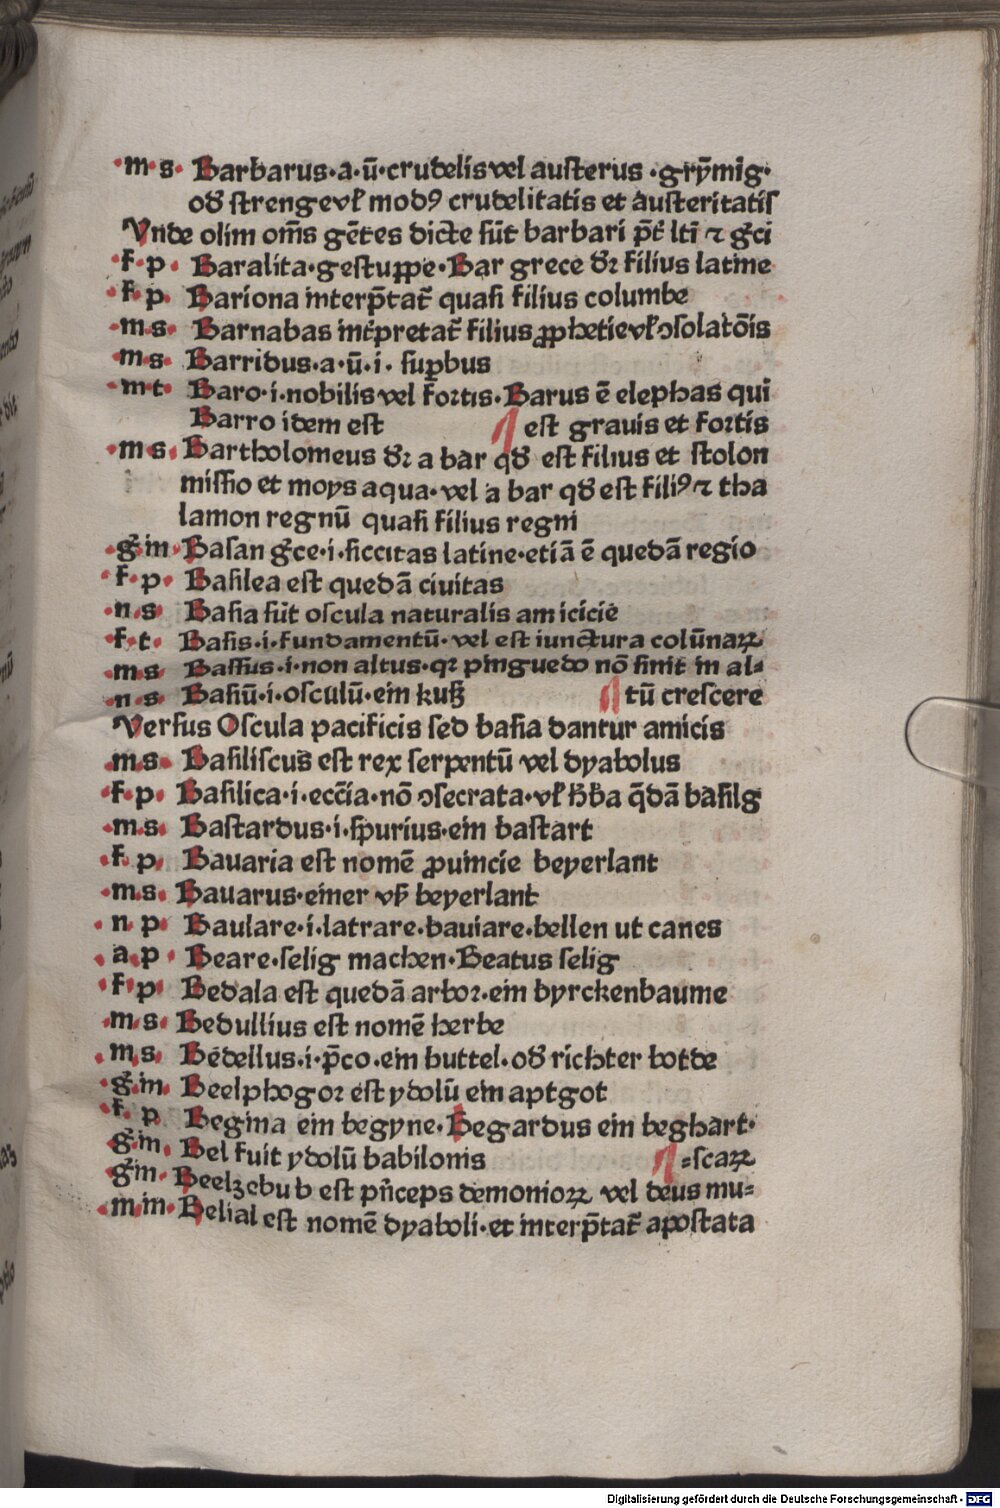 ·m·s· Barbarus·a·ū·crudelis vel austerus ·gry̅mig·
od̕ strenge vł modꝯ crudelitatis et austeritatis
Vnde olim om̅s ge̅tes dicte su̅t barbari p̅t̕ lt̅i ⁊ gc̅i
·f·p· Baralita·gestuppe·Bar grece dꝛ̅ filius latine
·f·p· Bariona interp̅tat᷑ quasi filius columbe
·m·s· Barnabas int̕pretat᷑ filius ꝓphetie vł ↄsolato̅is
·m·s· Barridus·a·ū·i· suꝑbus
·m·t· Baro·i·nobilis vel fortis·Barus e̅ elephas qui
Barro idem est ¶ est grauis et fortis
·m·s· Bartholomeus dꝛ̅ a bar qd̕ est filius et stolon
missio et moys aqua·vel a bar qd̕ est filiꝯ ⁊ tha
lamon regnu̅ quasi filius regni
·g̅·in· Basan g̅ce·i·siccitas latine·etia̅ e̅ queda̅ regio
·f·p· Basilea est queda̅ ciuitas
·n·s· Basia su̅t oscula naturalis amicicie
·f·t· Basis·i·fundamentu̅·vel est iunctura colu̅naꝝ
·m·s· Bassus·i·non altus·qꝛ pinguedo no̅ sinit in al⸗
·n·s· Basiu̅·i·osculu̅·ein kuß ¶ tu̅ crescere
Versus Oscula pacificis sed basia dantur amicis
·m·s· Basiliscus est rex serpentu̅ vel dyabolus
·f·p· Basilica·i·ecc̅ia·no̅ ↄsecrata·vł h̅b̅a q̅da̅ basilg
·m·s· Bastardus·i·spurius·ein bastart
·f·p· Bauaria est nome̅ ꝓuincie beyerlant
·m·s· Bauarus·einer vß beyerlant
·n·p· Baulare·i·latrare·bauiare·bellen ut canes
·a·p· Beare·selig machen·Beatus selig
·f·p· Bedala est queda̅ arbor·ein byrckenbaume
·m·s· Bedullius est nome̅ herbe
·m·s· Bedellus·i·p̅co·ein buttel·od̕ richter botde
·g̅·in· Beelphogor est ydolu̅ ein aptgot
·f·p Begina ein begyne·Begardus ein beghart·
g̅·in· Bel fuit ydolu̅ babilonis ¶ ⸗scaꝝ
g̅·in· Beelzebub est pn̅ceps demonioꝝ vel deus mu⸗
·m·in· Belial est nome̅ dyaboli·et interp̅tat᷑ apostata
Digitalisierung gefördert durch die Deutsche Forschungsgemeinschaft - DFG